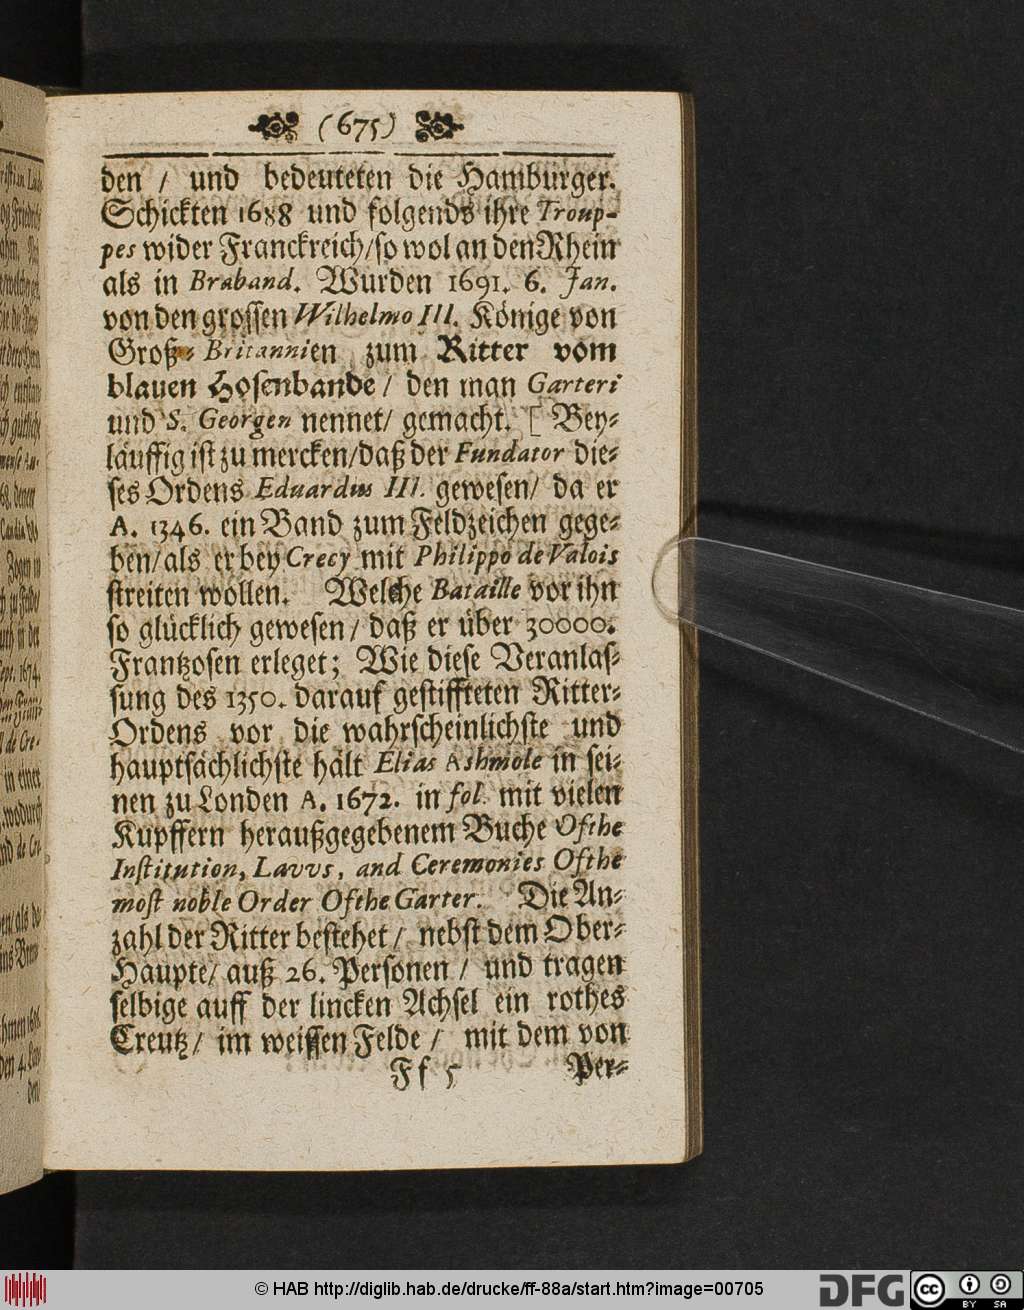 (675)
den / und bedeuteten die Hamburger.
Schickten 1688 und folgends ihre Troup-
pes wider Franckreich/so wol an den Rhein
als in Braband. Wurden 1691. 6. Jan.
von den grossen Wilhelmo III. Könige von
Groß- Britannien zum Ritter vom
blauen Hosenbande / den man Garteri
und S. Georgen nennet/ gemacht. [ Bey-
läuffig ist zu mercken/daß der Fundator die-
ses Ordens Eduardus III. gewesen/ da er
A. 1346. ein Band zum Feldzeichen gege-
ben/als er bey Crecy mit Philippo de Valois
streiten wollen. Welche Bataille vor ihn
so glücklich gewesen / daß er über 30000.
Frantzosen erleget; Wie diese Veranlas-
sung des 1350. darauf gestiffteten Ritter-
Ordens vor die wahrscheinlichste und
hauptsächlichste hält Elias Ashmole in sei-
nen zu Londen A. 1672. in fol. mit vielen
Kupffern heraußgegebenem Buche Ofthe
Institution, Lavvs, and Ceremonies Ofthe
most noble Order Ofthe Garter. Die An-
zahl der Ritter bestehet / nebst dem Ober-
Haupte/ auß 26. Personen / und tragen
selbige auff der lincken Achsel ein rothes
Creutz / im weissen Felde / mit dem von
Ff 5 Per-
© HAB http://diglib.hab.de/drucke/ff-88a/start.htm?image=00705
DFG cc BY SA